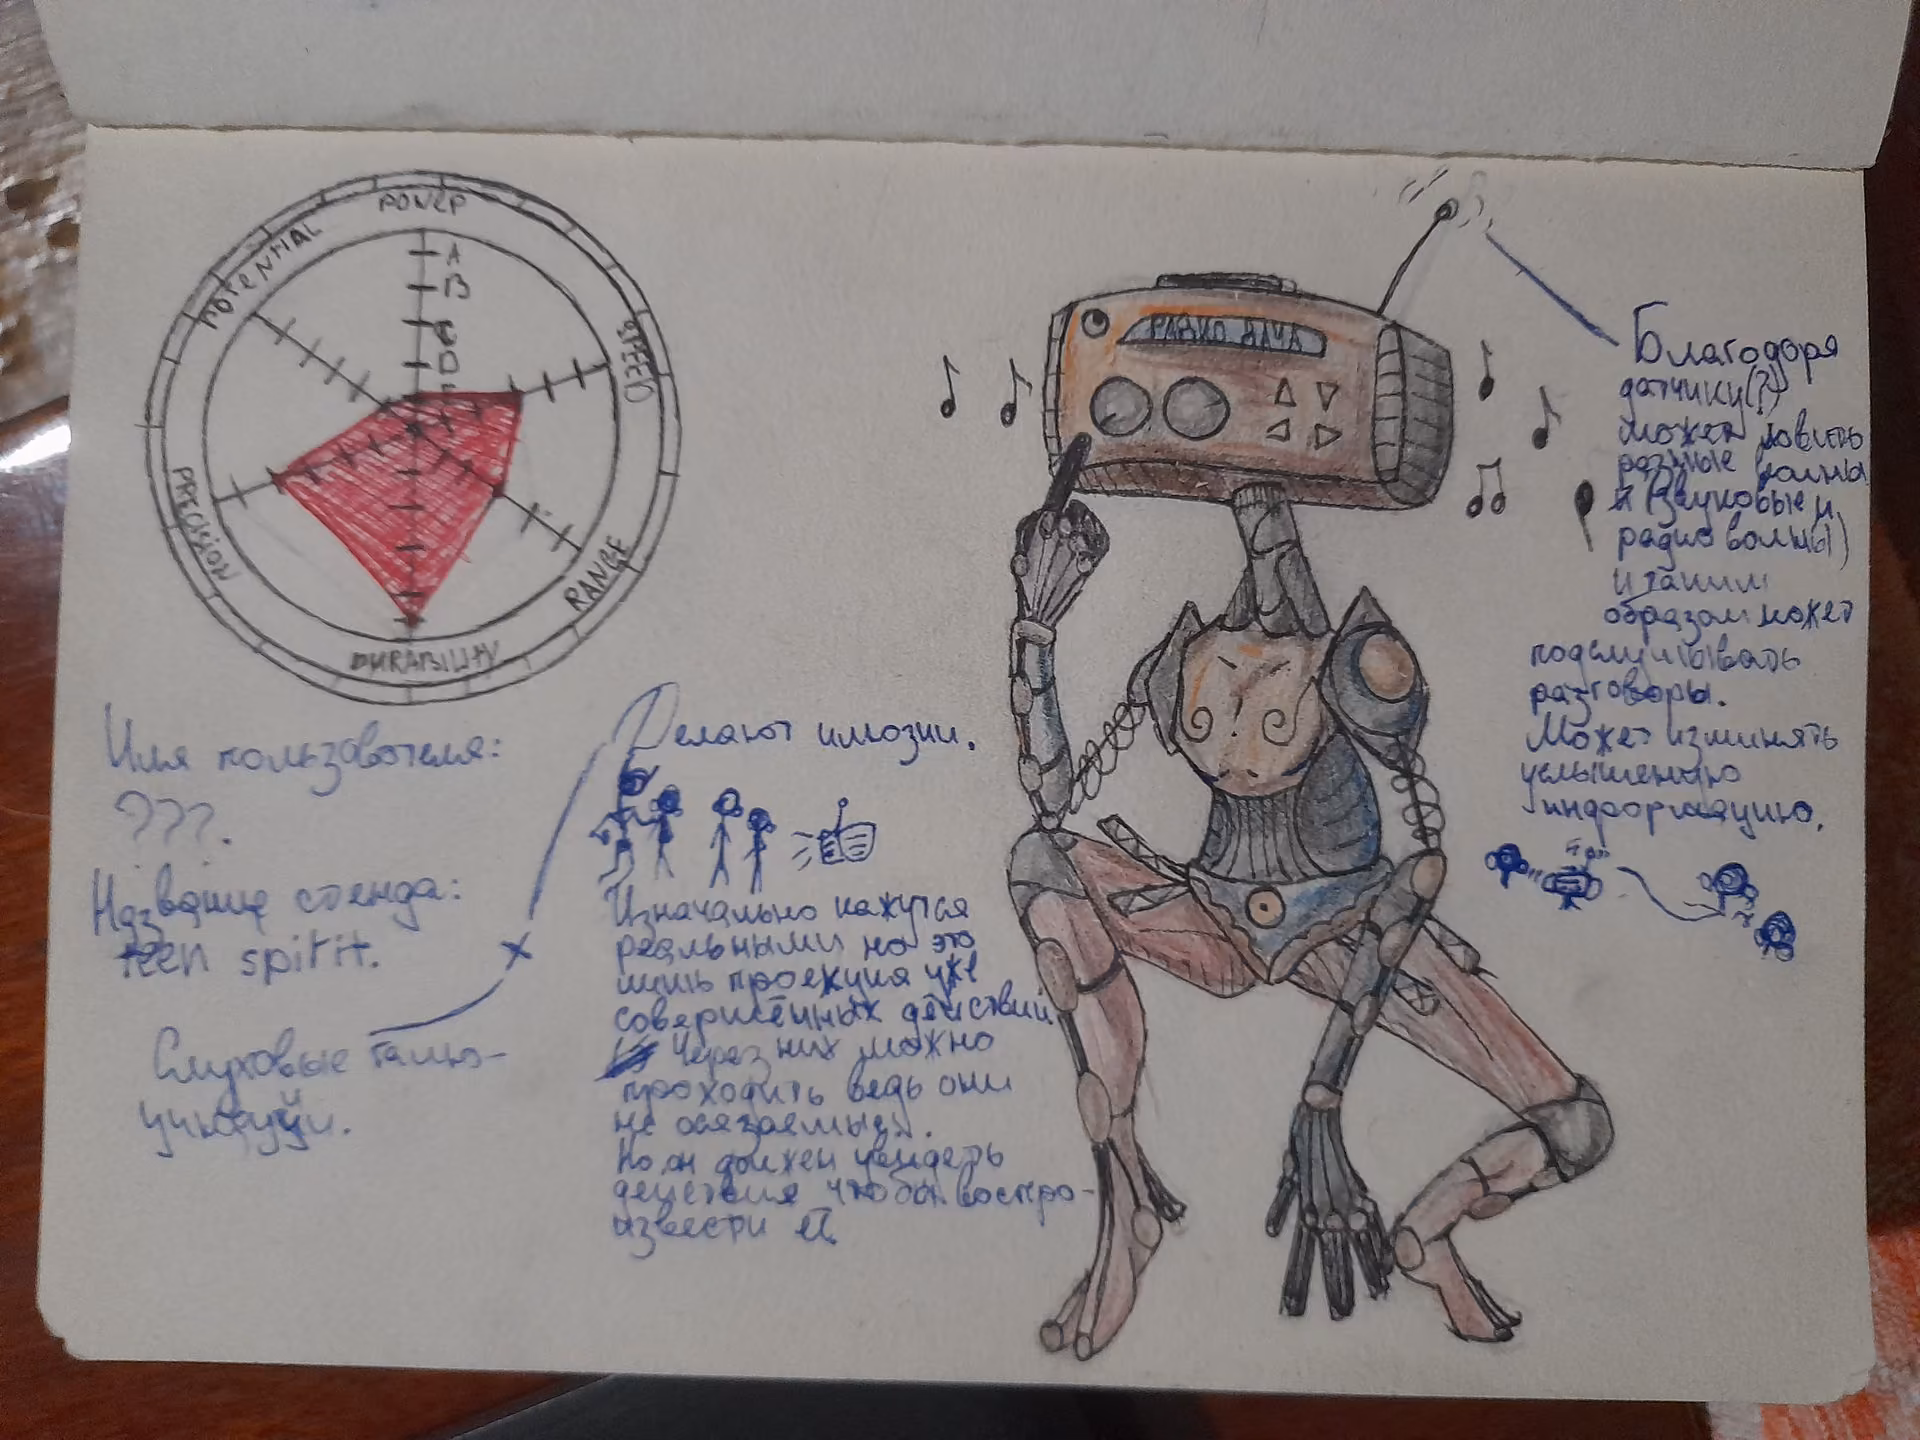 POWER
A
B
C
D
E
SPEED
RANGE
DURABILITY
PRECISION
POTENTIAL
РАДИО ДАЧА
Имя пользователя:
???.
Название стенда:
teen spirit.
Слуховые галю-
Делают илюзии.
Изначально кажутся
реальными но это
лишь проекция уже
совершённых действий
Через них можно
проходить ведь они
не осязаемы.
Но он должен увидеть
действия чтобы воспро-
извести её
Благодоря
датчику(?)
может ловить
разные волны
(Звуковые и
радио волны)
и таким
образом может
подслушивать
разговоры.
Может изминять
услышенную
информацию.